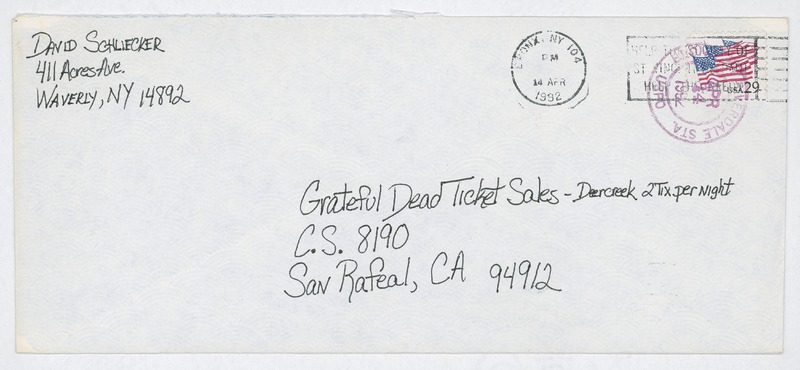 David Schliecker
411 Acres Ave.
Waverly, NY 14892
BRONX, NY 104
PM
14 APR
1992
USA 29
APR
14
1992
USPO
RIVERDALE STA.
Grateful Dead Ticket Sales - Deercreek 2 Tix. per Night
C.S. 8190
San Rafeal, CA 94912